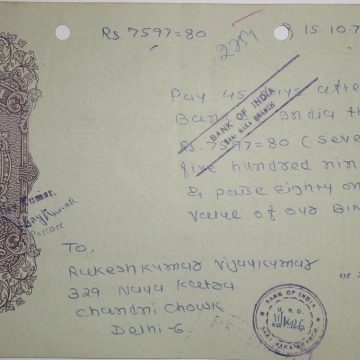 Rs. 7597=80
15.10.7
Pay 45 days afte
Ban India th
Rs. 7597=80 (Seve
five hundred nin
& paise Eighty on
value of our Bill
BANK OF INDIA
BRANCH
Kumar,
Partner
To,
Rakeshkumar Vijaykumar
329 Naya Katra
Chandni Chowk
Delhi-6.
for
BANK OF INDIA
BRANCH